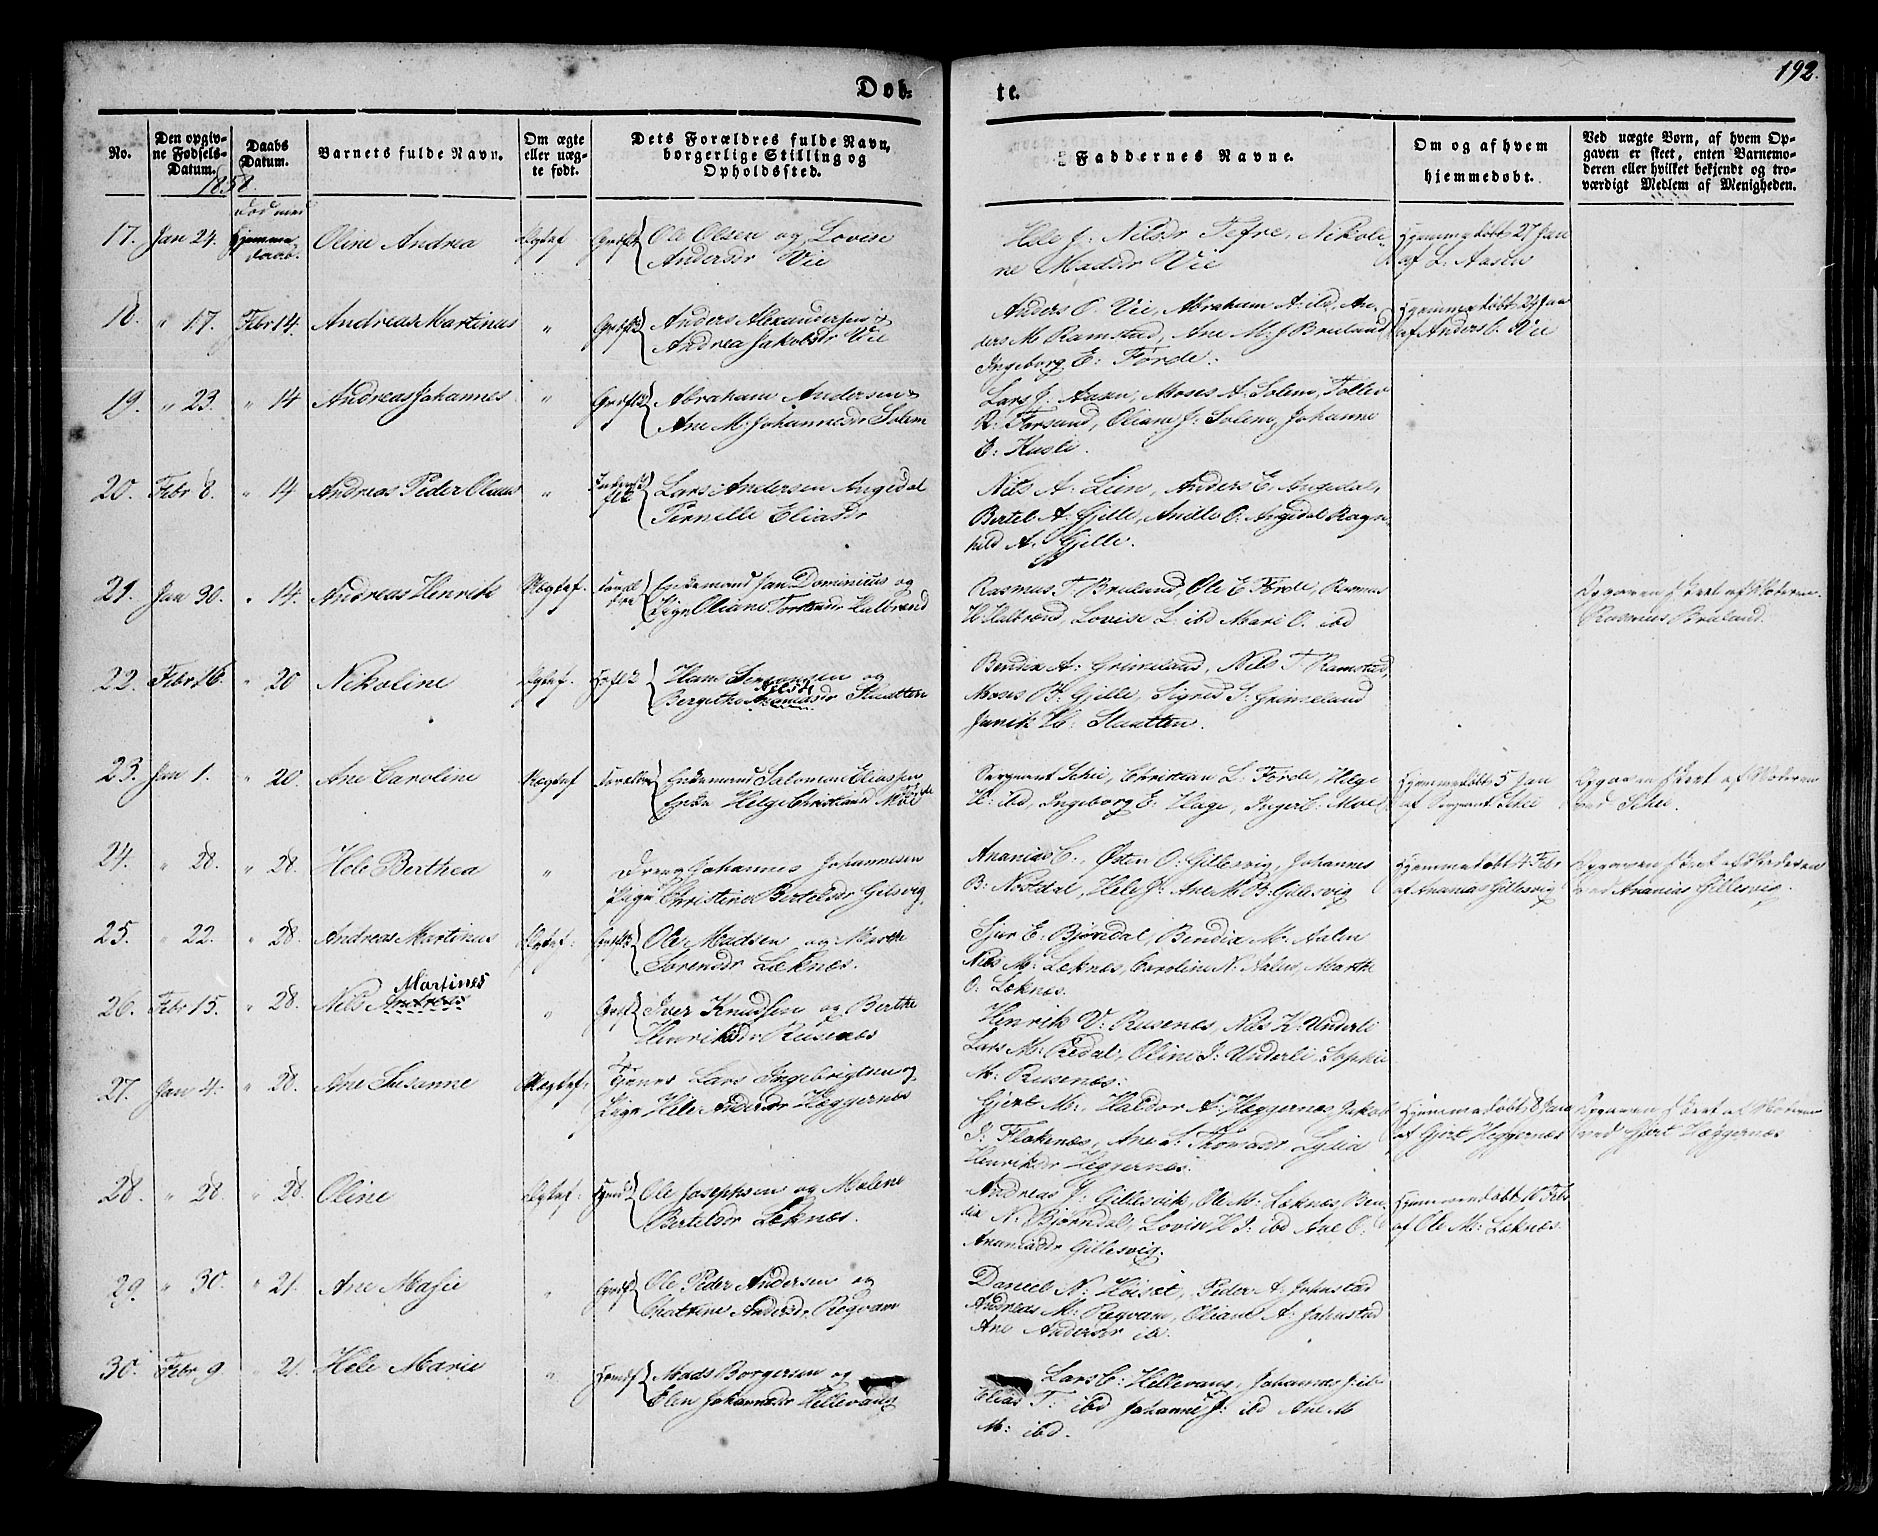 192.
Døb-
te.
No.
Den opgiv-
ne Fødsels-
Datum.
Daabs
Datum.
Barnets fulde Navn.
Om ægte
eller uæg-
te født.
Dets Forældres fulde Navn,
borgerlige Stilling og
Opholdssted.
Faddernes Navne.
Om og af hvem
hjemmedøbt.
Ved uægte Børn, af hvem Op-
gaven er skeet, enten Barnemo-
deren eller hvilket bekjendt og tro-
værdigt Medlem af Menigheden.
1858.
17. Jan 24. død med Hjemme daab. Oline Andrea Ægtef. Ole Olsen og Lovise
Andersdr Vie
Hele J: Nilsdr Tefre, Nikoli-
ne Madsdr Vie
Hjemmedøbt 27 Jan
af L. Aasen
18. " 17. Febr 14. Andreas Martinus " Anders Alexandersen &
Andrea Jakobsdr Vie
Anders O. Vie, Abraham A: ibd, An-
ders M Ramstad, Ane M: J Bruland
Ingeborg E: Førde.
Hjemmedøbt 24 Jan
af Anders O. Vie
19. " 23. " 14 Andreas Johannes " Abraham Andersen &
Ane M: Johannesdr Solem
Lars J. Aasen, Moses A. Solem, Tollev
R: Forsund, Oliane J: Solem, Johanne
E: Kusli.
20. Febr 8. " 14 Andreas Peder Olaus " Lars Andersen Angedal
Pernelle Eliasdr
Nils A: Lien, Anders E. Angedal,
Bertel A. Gjelle, Anders O. Angedal Ragn-
hild A. Gjelle.
21. Jan 30. " 14. Andreas Henrik Uægtef. Enkemand Jan Dominicus og
Pige Oliane Halbrend
Rasmus T. Bruland, Ole E Førde, Rasmus
H Halbrend, Lovise L. ibd Mari O. ibd
Opgaven skeet af Moderen.
Rasmus Bruland.
22. Febr 16. " 20 Nikoline Ægtef. Hans og
Bergithe Nilsdr Slaatten
Bendix A: Grimeland, Nils T Ramstad,
Moses B: Gjelle, Sigrid S: Grimeland
H: Slaatten.
23. Jan 1. " 20. Ane Caroline Uægtef Enkemand Salomon Eliassen
Enke Helge Christiansdr Moe
Sergeant Schei, Christian L. Førde, Helge
H: ibd, Ingeborg E. Hage, Inger C. Moe
Hjemmedøbt 5 Jan
af Sergeant Schei
Opgaven skeet af Moderen
ved Schei.
24. " 28. " 28. Hele Berthea " Dreng Johannes Johannesen
Pige Christine Bertelsdr Gilsvig.
Ananias C., Østen O: Gillesvig, Johannes
B: Nosdal, Hele J: Ane M B: Gillesvig
Hjemmedøbt 4 Febr
af Ananias Gillesvig
Opgaven skeet af Faderen
ved Ananias Gillesvig.
25. " 22. " 28. Andreas Martinus Ægtef. Ole Madsen og Marthe
Sørensdr Leknes.
Sjur E: Bjørdal, Bendix M: Aalen
Nils M: Leknes, Caroline N: Aalen, Marthe
O: Leknes.
26. Febr 15. " 28. Nils Andreas Martines " Iver Knudsen og Berthe
Henriksdr Rusenes
Henrik V: Rusenes, Nils K: Underli
Lars M: Redal, Oline J: Underli Sophie
M: Rusenes:
27. Jan 4. " 28. Ane Susanne Uægtef. Lars Ingebrigtsen og
Pige Hele Andersdr Heggernes
Gjert M:, Haldor A: Heggernes Jakob
J: Floknes, Ane S: Thomasdr Lydia
Henriksdr Hegnernes:
Hjemmedøbt 8 Jan
af Gjert Heggernes
Opgaven skeet af Moderen
ved Gjert Heggernes
28. " 28. " 28. Oline Ægtef. Ole Josephsen og Malene
Bertelsdr Leknes.
Andreas J: Gillesvik, Ole M: Leknes, Ben-
dix N: Bjørndal, Lovise H J: ibd Ane O:
Ananiasdr Gillesvig.
Hjemmedøbt 10 Febr
af Ole M: Leknes
29. " 30. " 21. Ane Masie " Ole Peder Andersen og
Cathrine Andersdr Røgvam
Daniel N: Høiset, Peder A. Johnstad
Andreas M: Røgvam, Oliane A: Jahnstad
Ane Andersdr ib.
30. Febr 9. " 21. Hele Marie " Mads Borgersen og
Elen Johannesdr Hellevang
Lars C: Hellevang, Johannes J: ib-
Elias T: ibd Johanne J: ibd Ane M
M: ibd.